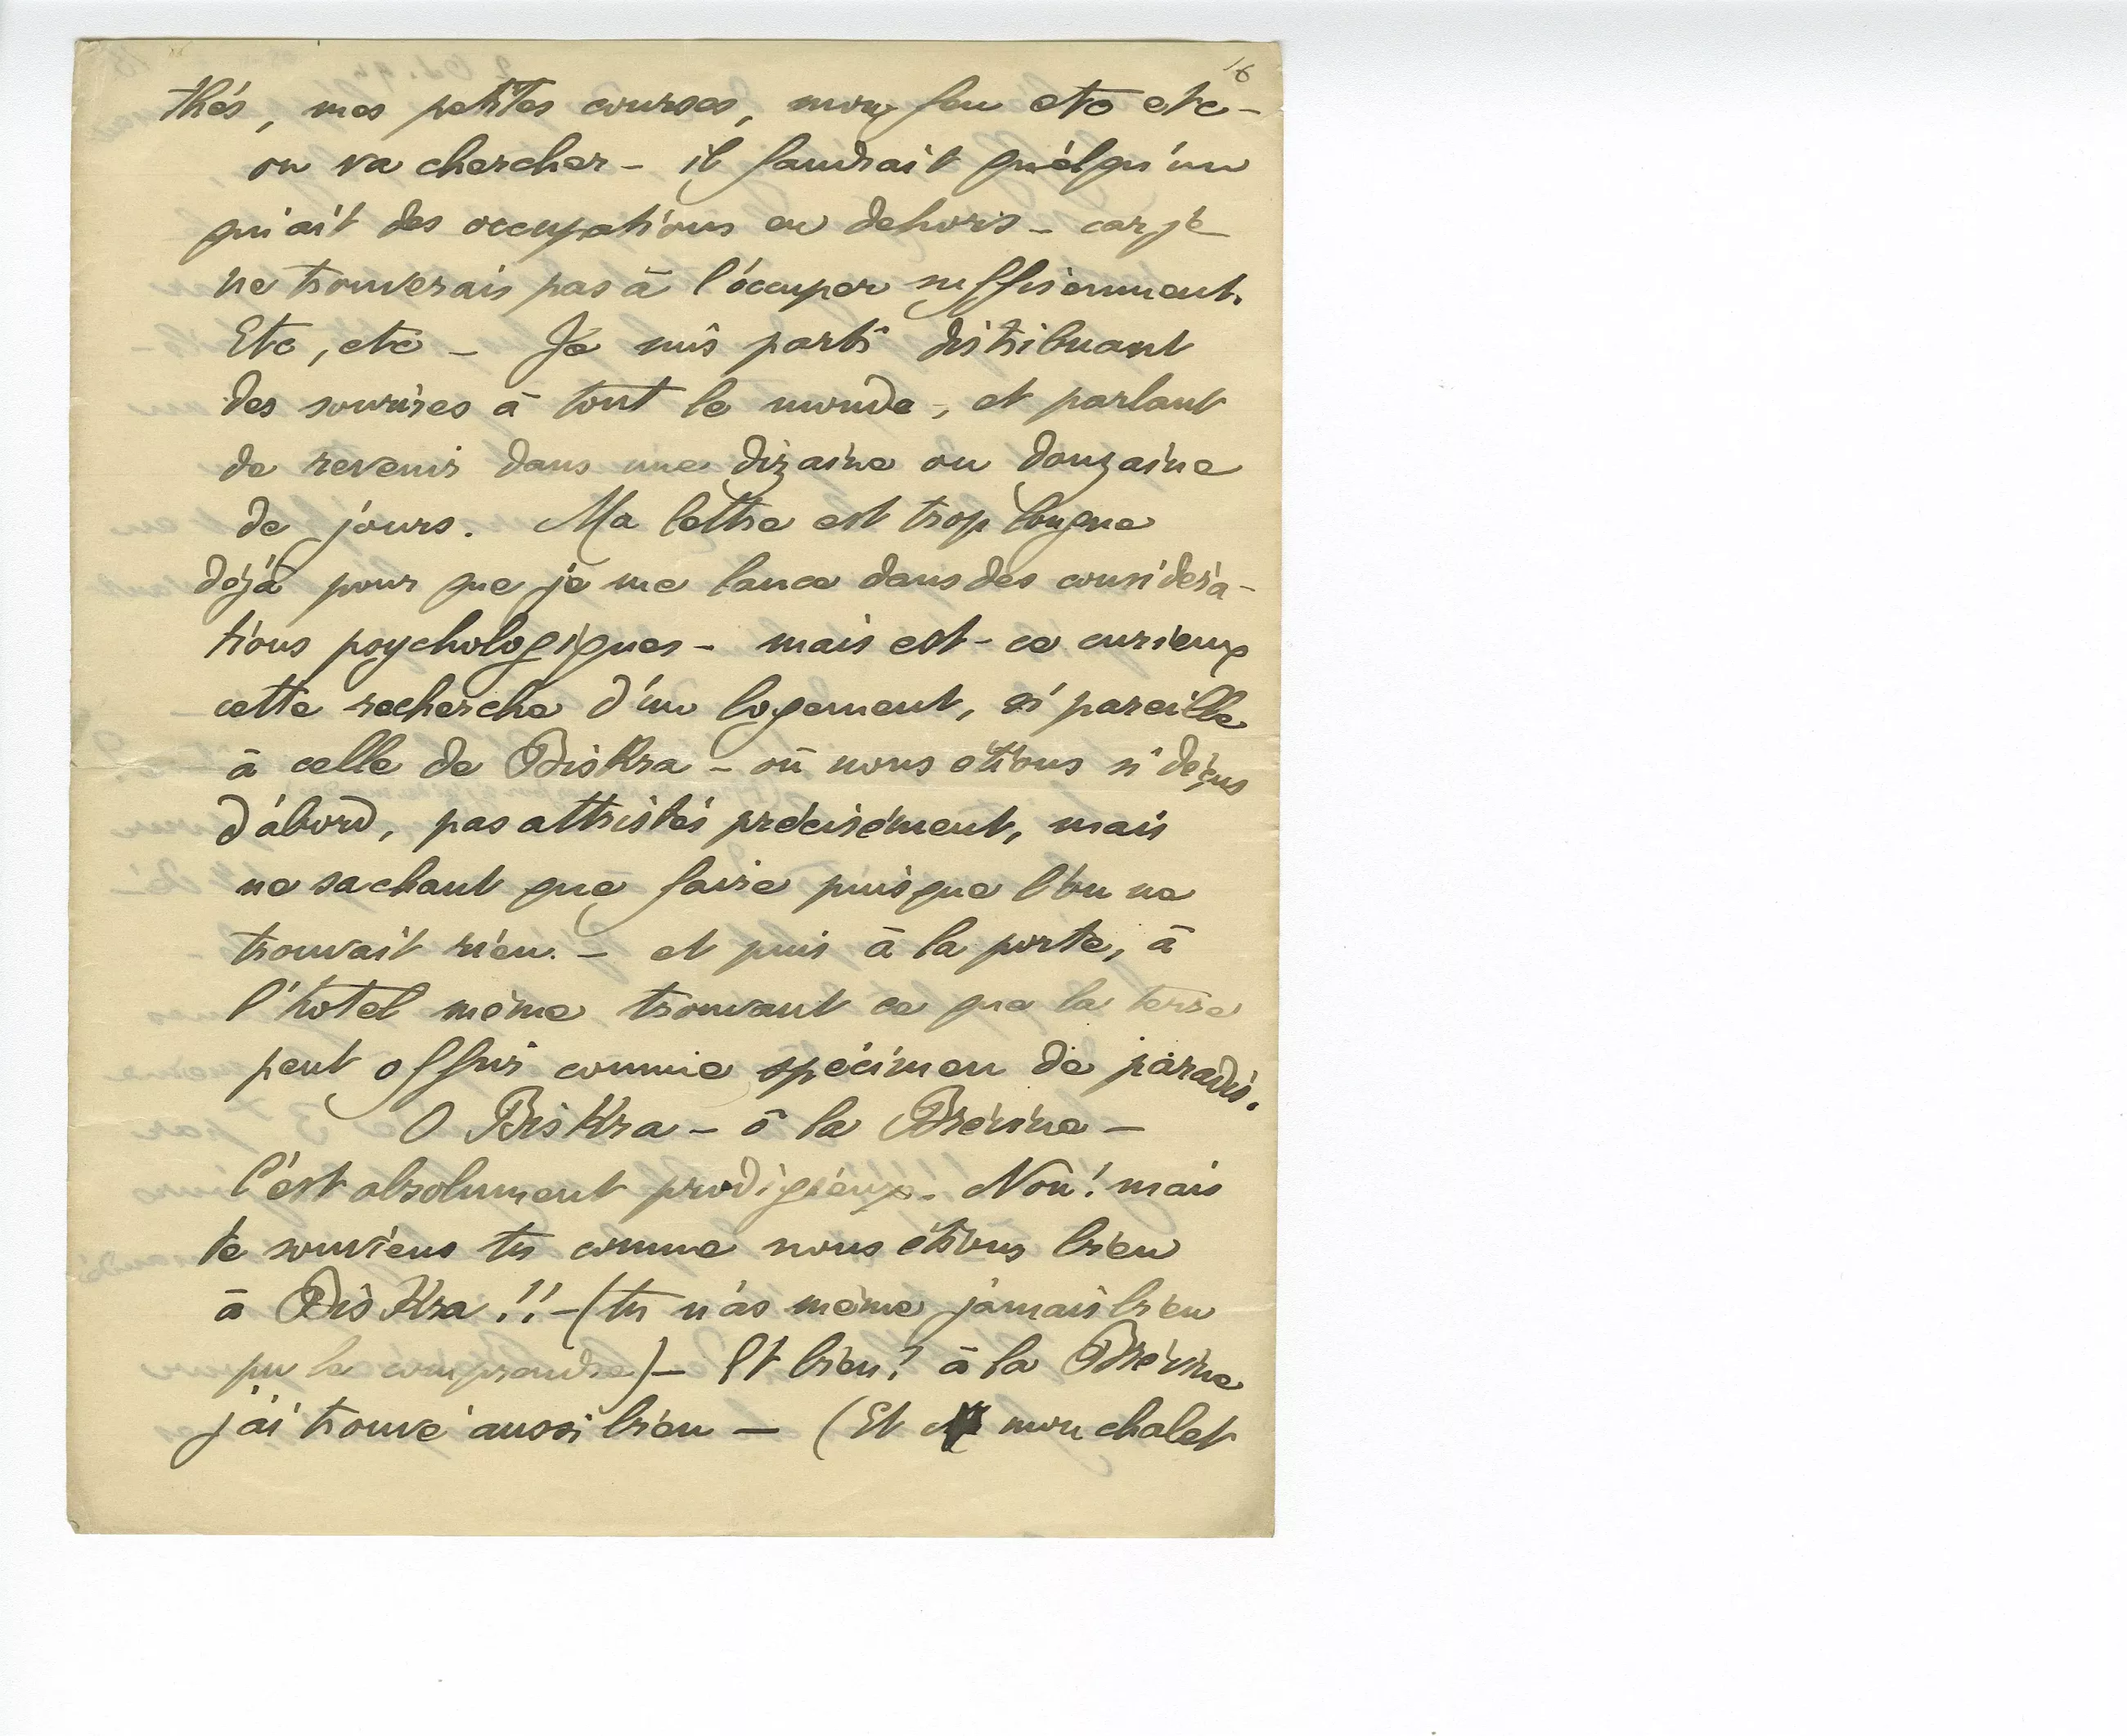 16
thés, mes petites courses, mon feu etc etc –
on va chercher – il faudrait quelqu'un
qui ait des occupations en dehors – car je
ne trouverais pas à l'occuper suffisamment.
Etc, etc – Je suis parti distribuant
des sourires à tout le monde –, et parlant
de revenir dans une dizaine ou douzaine
de jours. Ma lettre est trop longue
déjà pour que je me lance dans des considéra-
tions psychologiques – mais est-ce curieux
cette recherche d'un logement, si pareille
à celle de Biskra – où nous étions si déçus
d'abord, pas attristés précisément, mais
ne sachant que faire puisque l'on ne
trouvait rien. – et puis à la porte, à
l'hotel même trouvant ce que la terre
peut offrir comme spécimen de paradis.
O Biskra – ô la Brévine –
C'est absolument prodigieux. Non! mais
te souviens tu comme nous étions bien
à Biskra!! – (tu n'as même jamais bien
pu le comprendre) – Et bien! à la Brévine
j'ai trouvé aussi bien – (Et mon chalet